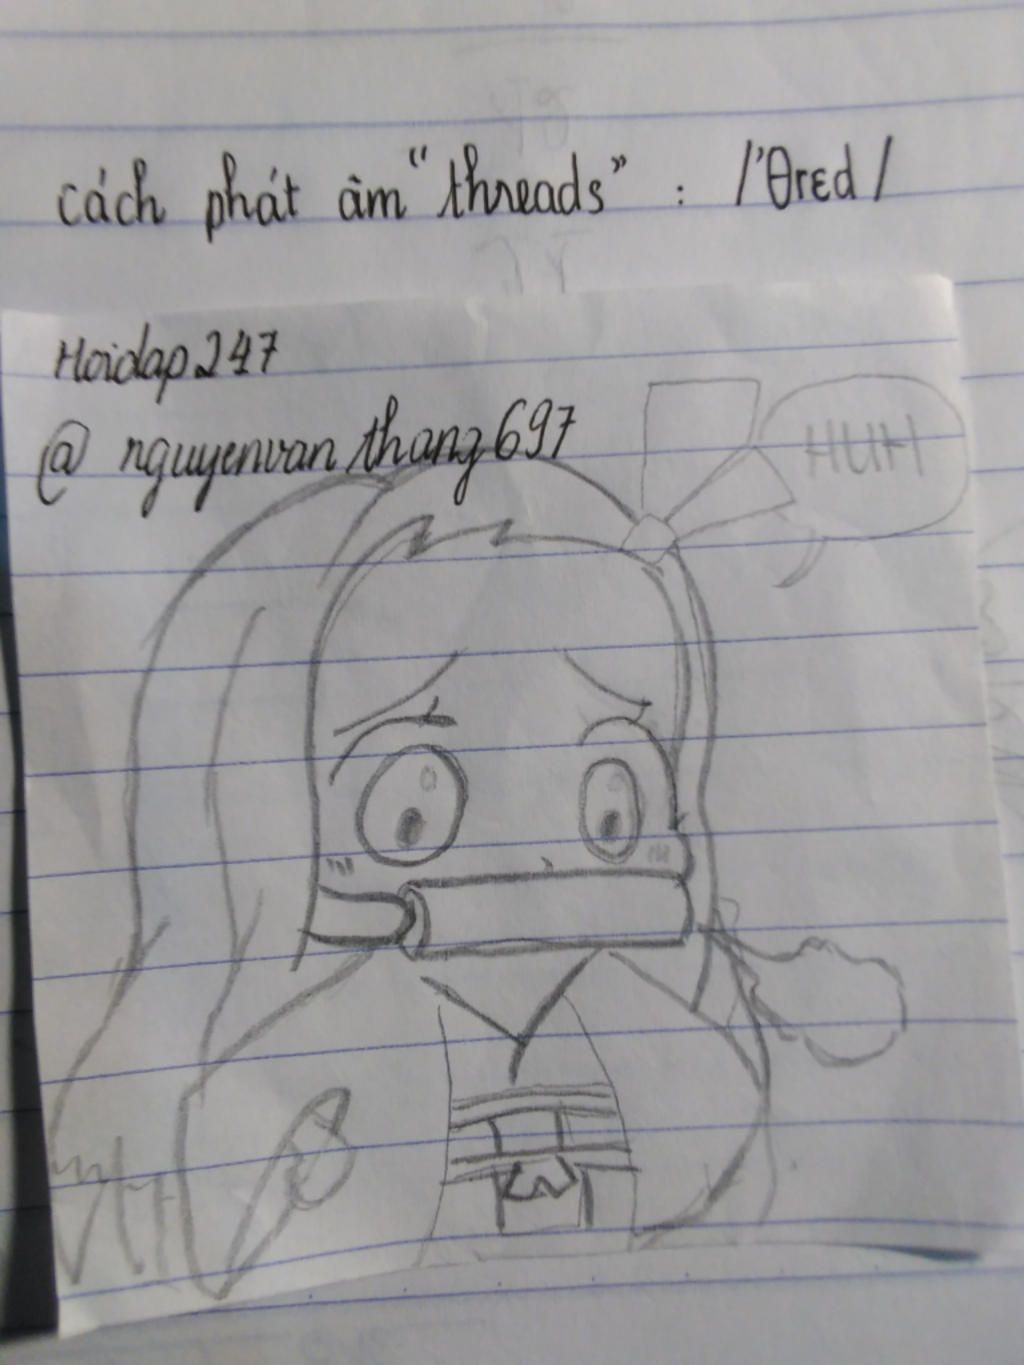 cách phát âm "threads" : /'θrɛd/
Hoidap247
@nguyenvanthang697
HUH